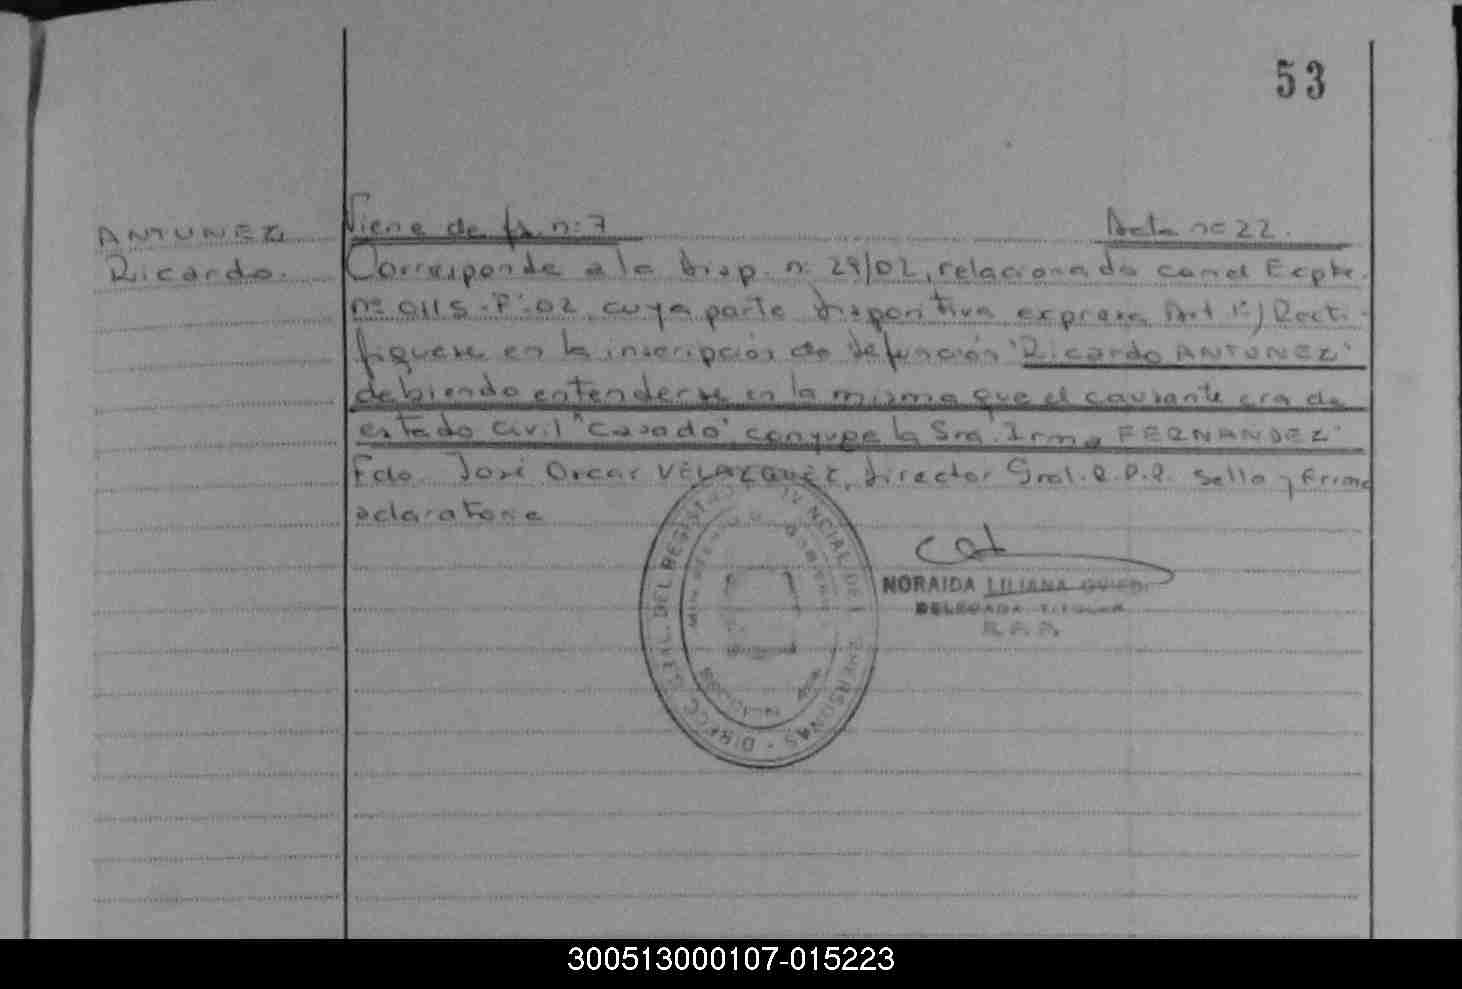 53
ANTUNEZ
Ricardo.
Viene de fs. nº 7
Acta nº 22.
Corresponde a la Disp. nº 29/02, relacionada con el Expte.
nº 0115-P-02, cuya parte dispositiva expresa Art 1º) Recti-
fiquese en la inscripción de defunción "Ricardo ANTUNEZ"
debiendo entenderse en la misma que el causante era de
estado civil "Casado" conyuge la Sra. "Irma FERNANDEZ"
Fdo. José Oscar VELAZQUEZ, Director Gral. R.P.P. Sello y firma
aclaratoria
NORAIDA LILIANA
DELEGADA TITULAR
R.P.P.
DIRECC. GRAL. DEL REGISTRO PROVINCIAL DE PERSONAS
MINISTERIO DE GOBIERNO
300513000107-015223